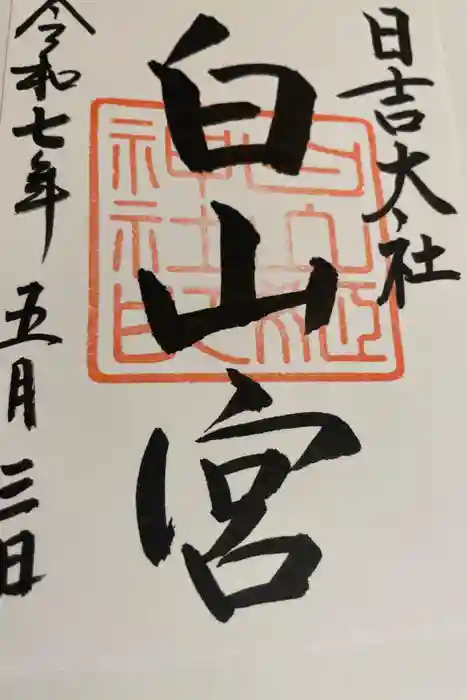 日吉大社
白山宮
令和七年 五月 三日